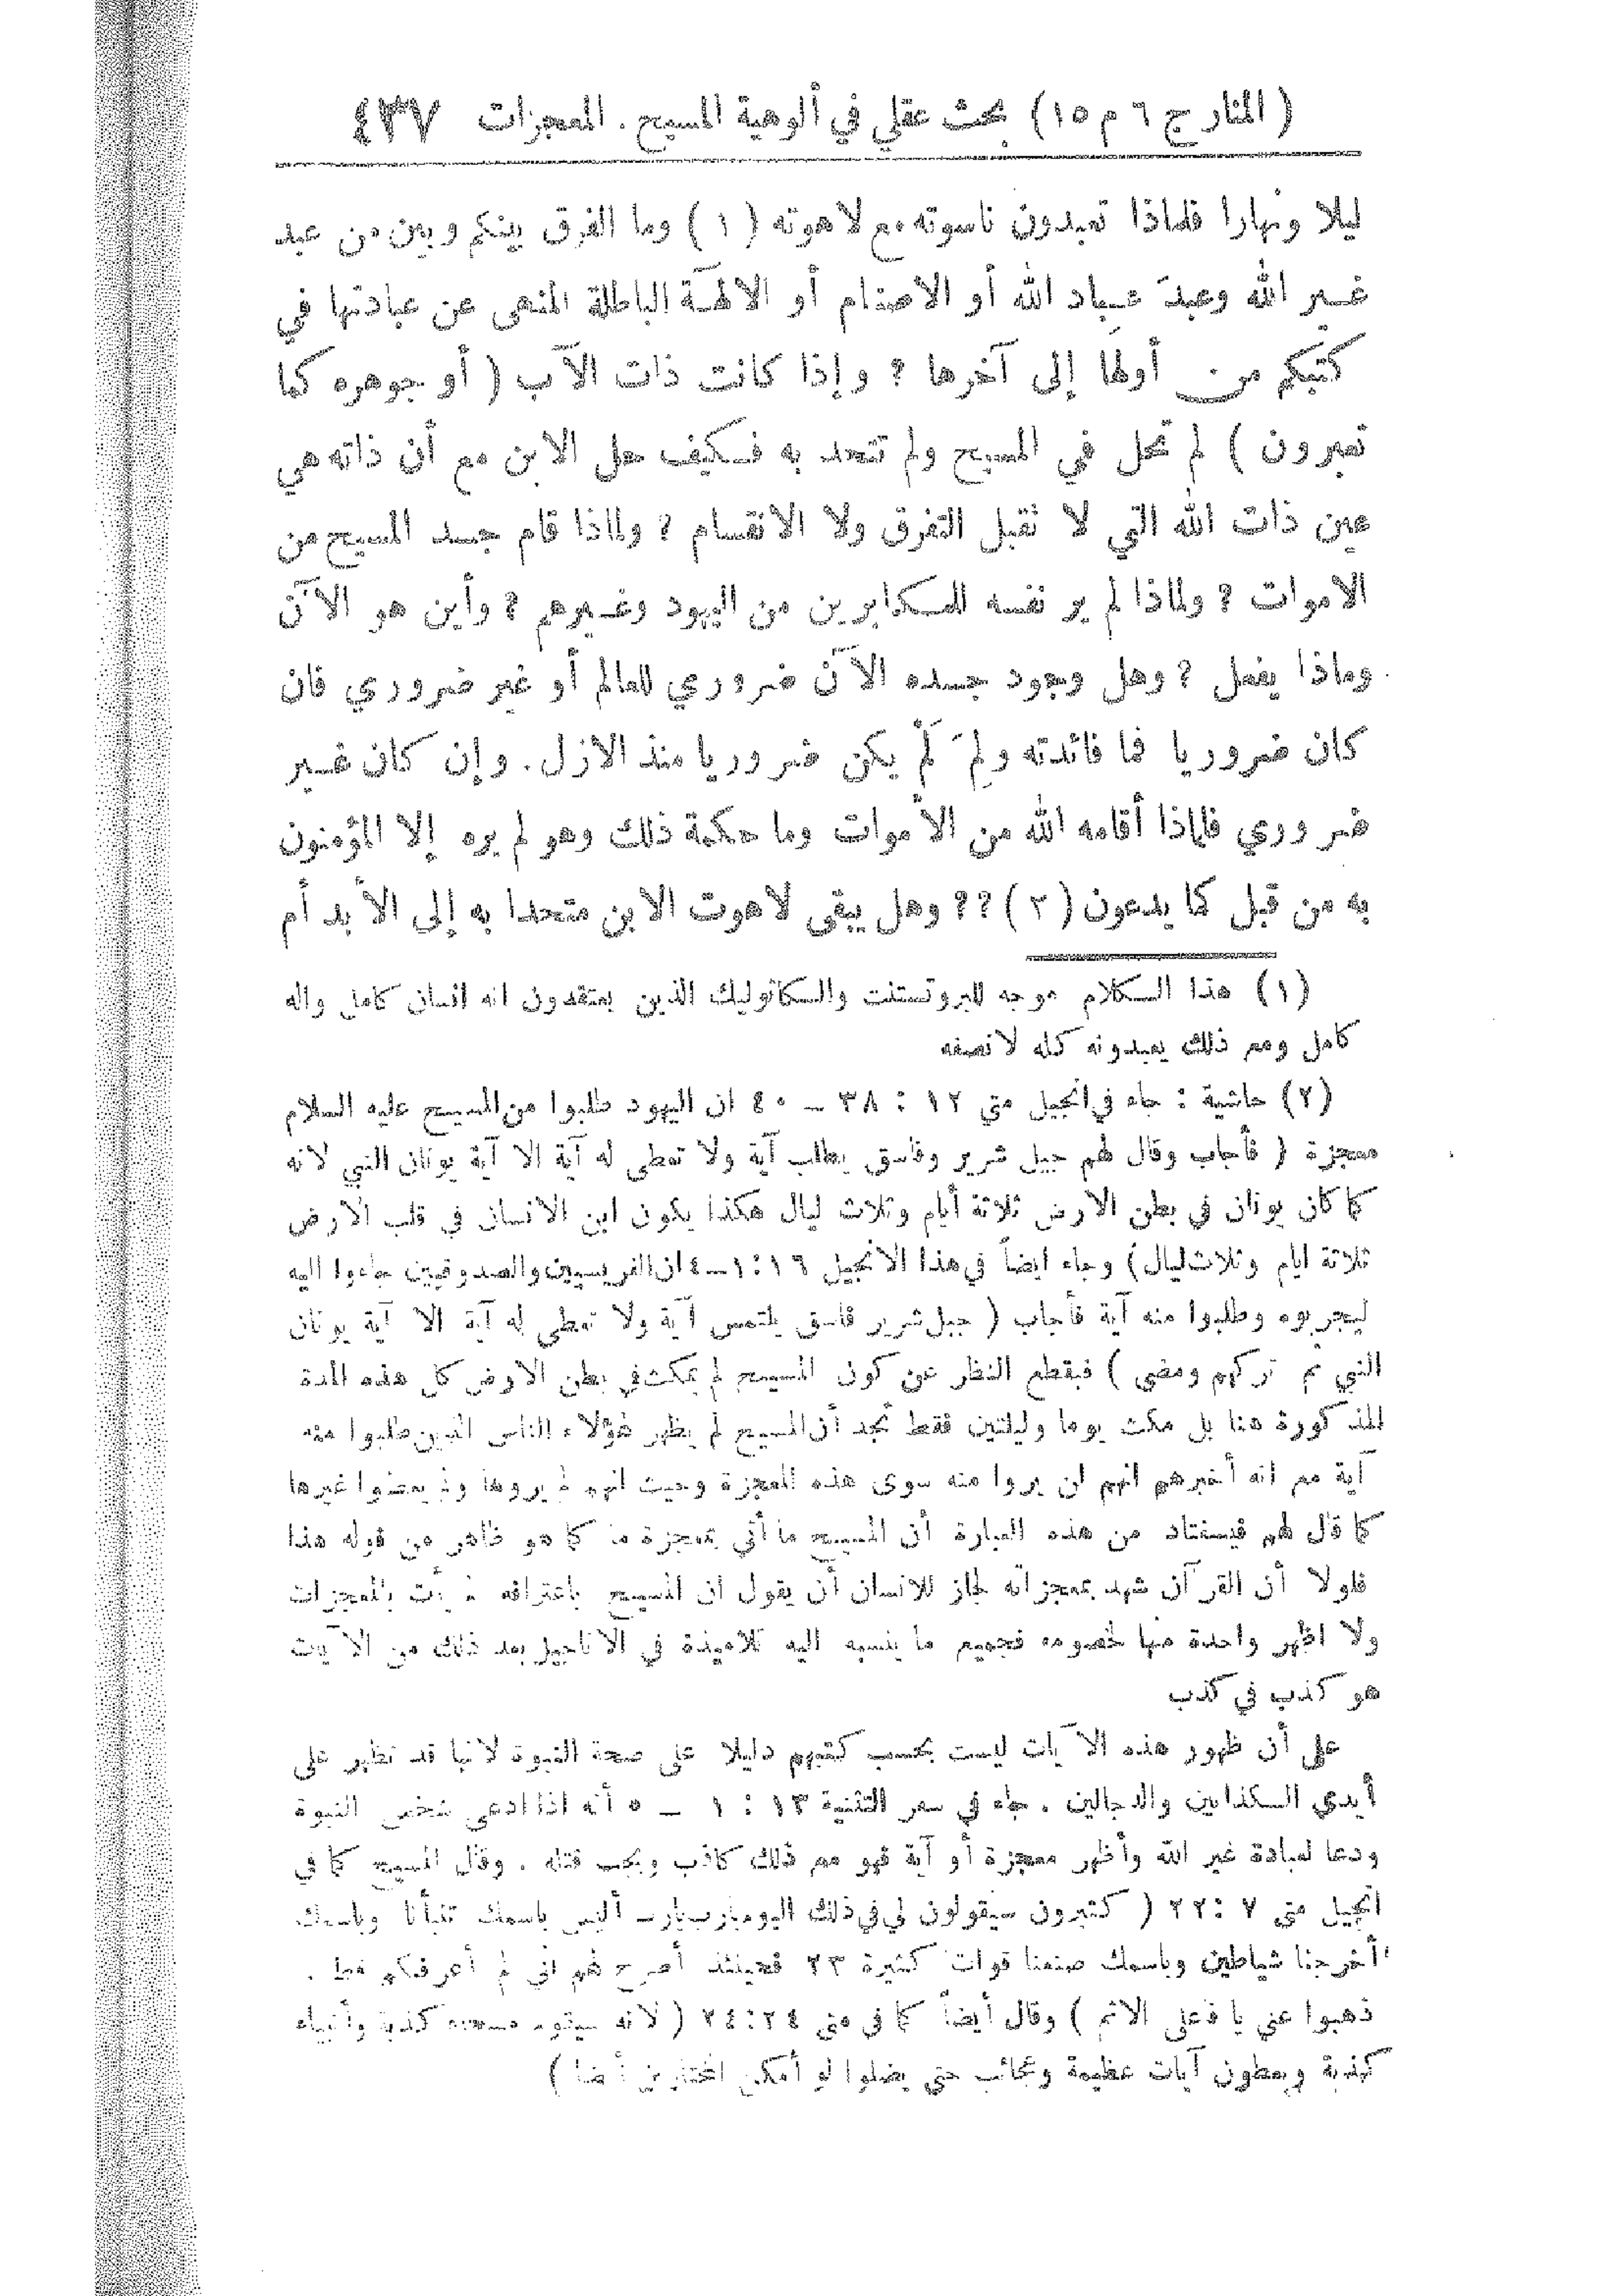 ( المنار ج ٦ م ١٥ ) بحث عقلي في ألوهية المسيح . المعجزات ٤٣٧
ليلا ونهارا فلماذا تعبدون ناسوته مع لاهوته ( ١ ) وما الفرق بينكم وبين من عبد
غير الله وعبدَ عباد الله أو الاصنام أو الالهَة الباطلة المنهى عن عبادتها في
كتبكم من أولها إلى آخرها ? وإذا كانت ذات الآب ( أو جوهره كما
تعبرون ) لم تحل في المسيح ولم تتحد به فكيف حل الابن مع أن ذاته هي
عين ذات الله التي لا تقبل التفرق ولا الانقسام ? ولماذا قام جسد المسيح من
الاموات ? ولماذا لم ير نفسه للمكابرين من اليهود وغيرهم ? وأين هو الآن
وماذا يفعل ? وهل وجود جسده الآن ضروري للعالم أو غير ضروري فان
كان ضروريا فما فائدته ولِمَ لَمْ يكن ضروريا منذ الازل . وإن كان غير
ضروري فلماذا أقامه الله من الأموات وما حكمة ذلك وهو لم يره إلا المؤمنون
به من قبل كما يدعون ( ٢ ) ?? وهل يبقى لاهوت الابن متحدا به إلى الأبد أم
(١) هذا الكلام موجه للبروتستنت والكاثوليك الذين يعتقدون انه انسان كامل واله
كامل ومع ذلك يعبدونه كله لا نصفه
(٢) حاشية : جاء في انجيل متي ١٢ : ٣٨ – ٤٠ ان اليهود طلبوا من المسيح عليه السلام
معجزة ( فأجاب وقال لهم جيل شرير وفاسق يطلب آية ولا تعطى له آية الا آية يونان النبي لانه
كما كان يونان في بطن الارض ثلاثة أيام وثلاث ليال هكذا يكون ابن الانسان في قلب الارض
ثلاثة ايام وثلاث ليال ) وجاء ايضاً في هذا الانجيل ١٦ : ١–٤ ان الفريسيين والصدوقيين جاءوا اليه
ليجربوه وطلبوا منه آية فأجاب ( جيل شرير فاسق يلتمس آية ولا تعطى له آية الا آية يونان
النبي ثم تركهم ومضى ) فبقطع النظر عن كون المسيح لم يمكث في بطن الارض كل هذه المدة
المذكورة هنا بل مكث يوما وليلتين فقط نجد أن المسيح لم يظهر لهؤلاء الناس الذين طلبوا منه
آية مع انه أخبرهم انهم لن يروا منه سوى هذه المعجزة وحيث انهم لم يروها ولم يعطوا غيرها
كما قال لهم فيستفاد من هذه العبارة أن المسيح ما أتى بمعجزة ما كما هو ظاهر من قوله هذا
فلولا أن القرآن شهد بمعجزاته لجاز للانسان أن يقول ان المسيح باعترافه لم يأت بالمعجزات
ولا اظهر واحدة منها لخصومه فجميع ما ينسبه اليه تلاميذه في الاناجيل بعد ذلك من الآيات
هو كذب في كذب
على أن ظهور هذه الآيات ليست بحسب كتبهم دليلا على صحة النبوة لانها قد تظهر على
أيدي الكذابين والدجالين . جاء في سفر التثنية ١٣ : ١ – ٥ أنه اذا ادعى شخص النبوة
ودعا لعبادة غير الله وأظهر معجزة أو آية فهو مع ذلك كاذب ويجب قتله . وقال المسيح كما في
انجيل متى ٧ : ٢٢ ( كثيرون سيقولون لي في ذلك اليوم يارب يارب أليس باسمك تنبأنا وباسمك
أخرجنا شياطين وباسمك صنعنا قوات كثيرة ٢٣ فحينئذ أصرح لهم اني لم أعرفكم قط .
ذهبوا عني يا فاعلي الاثم ) وقال أيضاً كما في متى ٢٤ : ٢٤ ( لانه سيقوم مسحاء كذبة وأنبياء
كذبة ويعطون آيات عظيمة وعجائب حتى يضلوا لو أمكن المختارين أيضا )